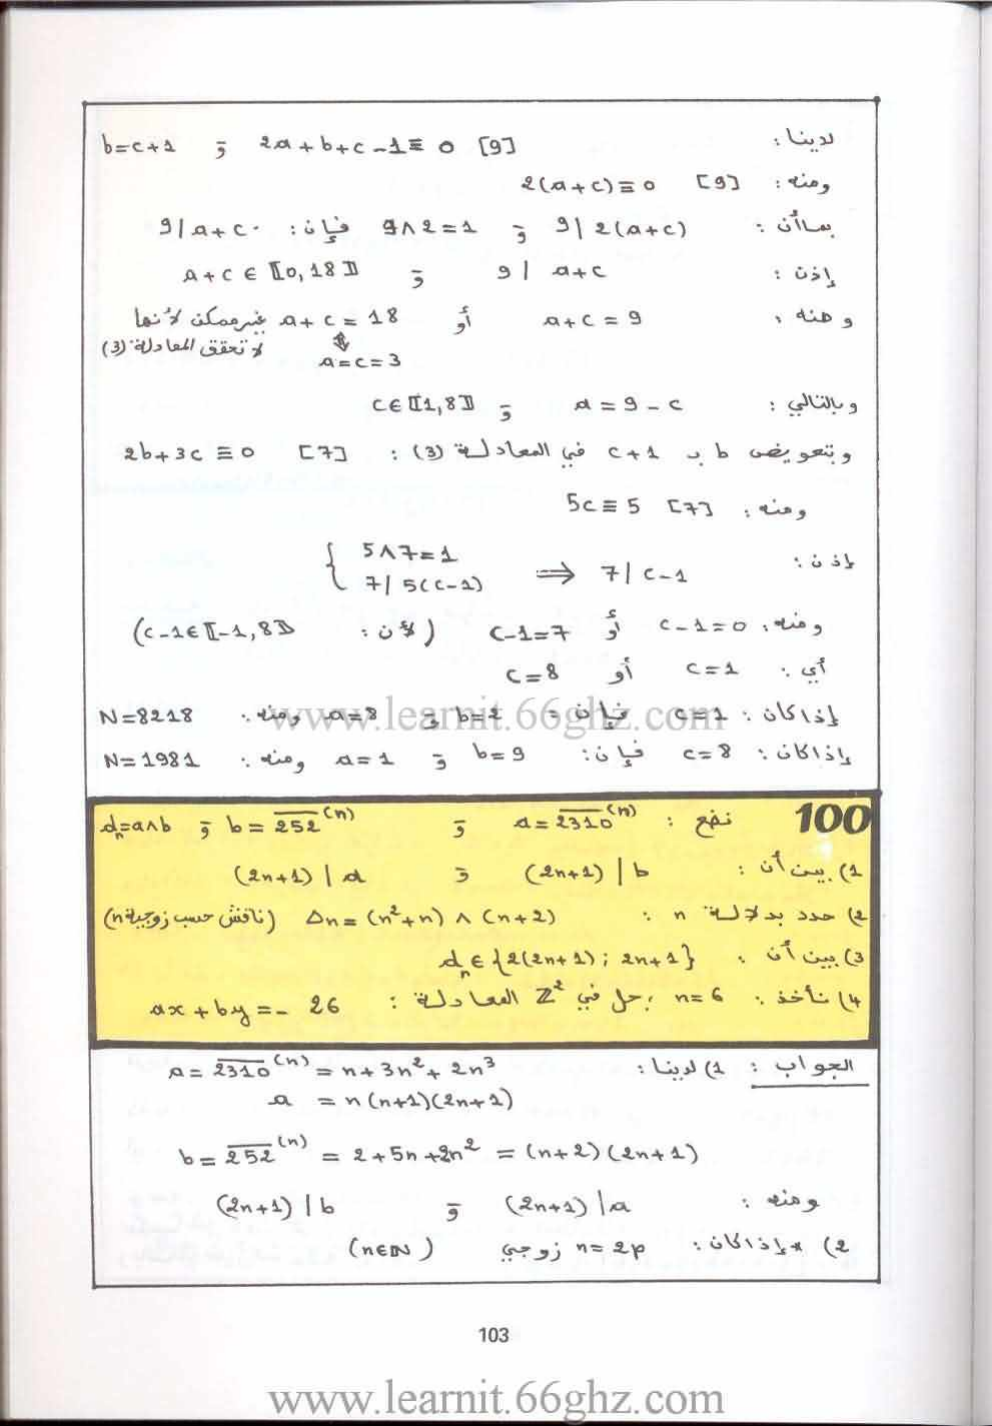 لدينا : 2a + b + c - 1 ≡ 0 [9] و b = c + 1
ومنه : 2(a + c) ≡ 0 [9]
بما أن : 9 | 2(a + c) و 9 ∧ 2 = 1 فإن : 9 | a + c .
إذن : 9 | a + c و a + c ∈ ⟦0, 18⟧
ومنه : a + c = 9 أو a + c = 18 غير ممكن لأنها
⇕ لا تحقق المعادلة (3)
a = c = 3
وبالتالي : a = 9 - c و c ∈ ⟦1, 8⟧
وبتعويض b بـ c + 1 في المعادلة (3) : 2b + 3c ≡ 0 [7]
ومنه : 5c ≡ 5 [7]
إذن : { 5 ∧ 7 = 1 ; 7 | 5(c - 1) ⟹ 7 | c - 1
ومنه : c - 1 = 0 أو c - 1 = 7 (لأن : c - 1 ∈ ⟦-1, 8⟧)
أي : c = 1 أو c = 8
إذا كان : c = 1 فإن : b = 2 و a = 8 ومنه : N = 8218
إذا كان : c = 8 فإن : b = 9 و a = 1 ومنه : N = 1981
www.learnit.66ghz.com
100 نضع : a = \overline{2310}^{(n)} و b = \overline{252}^{(n)} و d_n = a ∧ b
1) بين أن : (2n + 1) | b و (2n + 1) | a
2) حدد بدلالة n : Δn = (n² + n) ∧ (n + 2) (ناقش حسب زوجية n)
3) بين أن : d_n ∈ {2(2n + 1) ; 2n + 1}
4) نأخذ : n = 6 ; حل في ℤ² المعادلة : ax + by = - 26
الجواب : 1) لدينا : a = \overline{2310}^{(n)} = n + 3n² + 2n³
a = n(n + 1)(2n + 1)
b = \overline{252}^{(n)} = 2 + 5n + 2n² = (n + 2)(2n + 1)
ومنه : (2n + 1) | a و (2n + 1) | b
2) * إذا كان : n = 2p زوجي (n ∈ ℕ)
103
www.learnit.66ghz.com